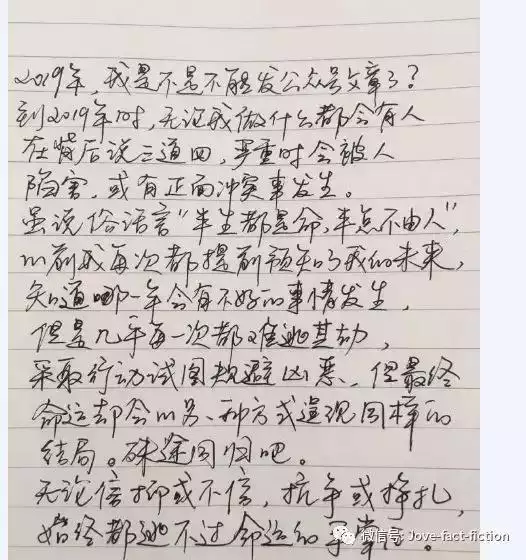 2019年，我是不是不能发公众号文章了？
到2019年时，无论我做什么都会有人
在背后说三道四，严重时会被人
陷害，或有正面冲突事发生。
虽说俗话言“半生都是命，半点不由人”，
以前我每次都提前预知了我的未来，
知道哪一年会有不好的事情发生，
但是几乎每一次都难逃其劫，
采取行动试图规避凶恶、但最终
命运却会以另一种方式造现同样的
结局。殊途同归吧。
无论信抑或不信，抗争或挣扎，
始终都逃不过命运的手掌心。
微信号: Jove-fact-fiction